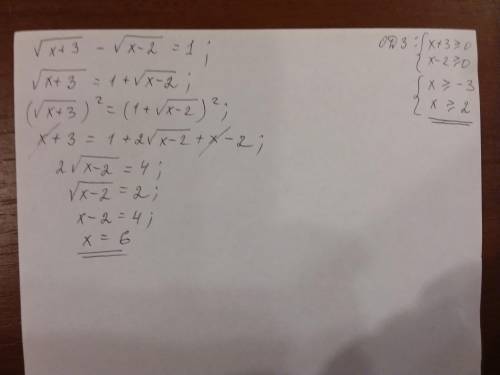 √x+3 - √x-2 = 1;
√x+3 = 1+√x-2;
(√x+3)² = (1+√x-2)²;
x+3 = 1+2√x-2+x-2;
2√x-2 = 4;
√x-2 = 2;
x-2 = 4;
x = 6
ОДЗ: { x+3≥0
x-2≥0
{ x ≥ -3
x ≥ 2